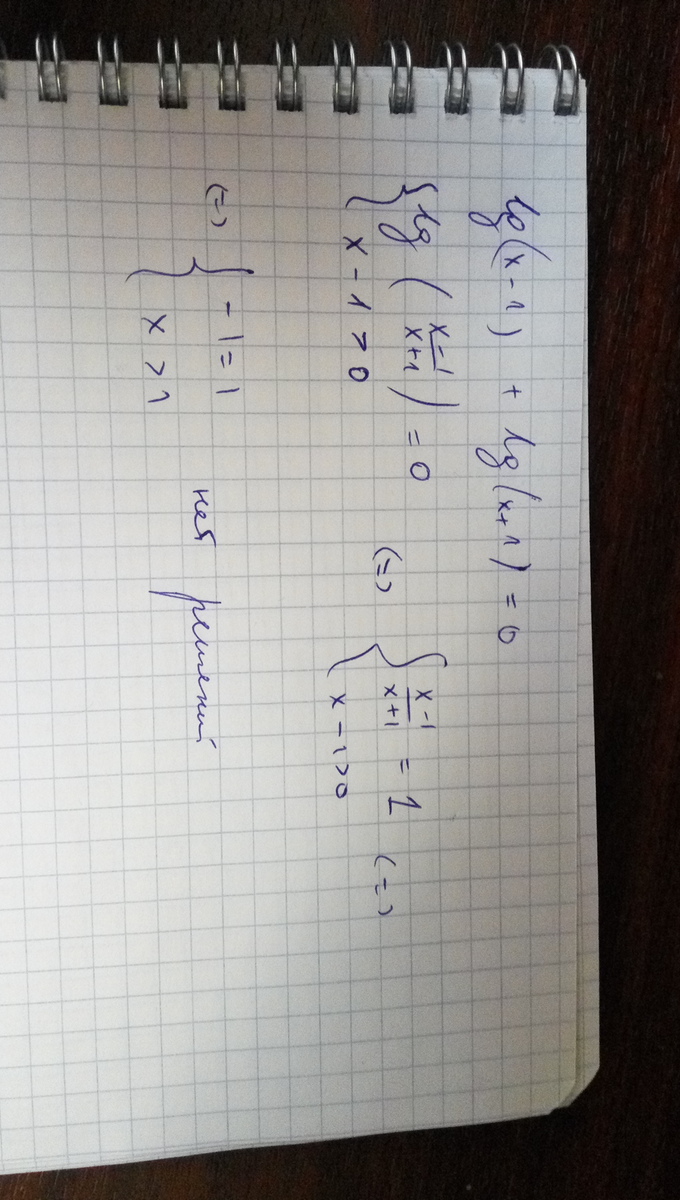 lg(x-1) + lg(x+1) = 0
{ lg (x-1/x+1) = 0 (=) { x-1/x+1 = 1 (=)
x-1>0 x-1>0
(=) { -1=1
x>1 нет решений